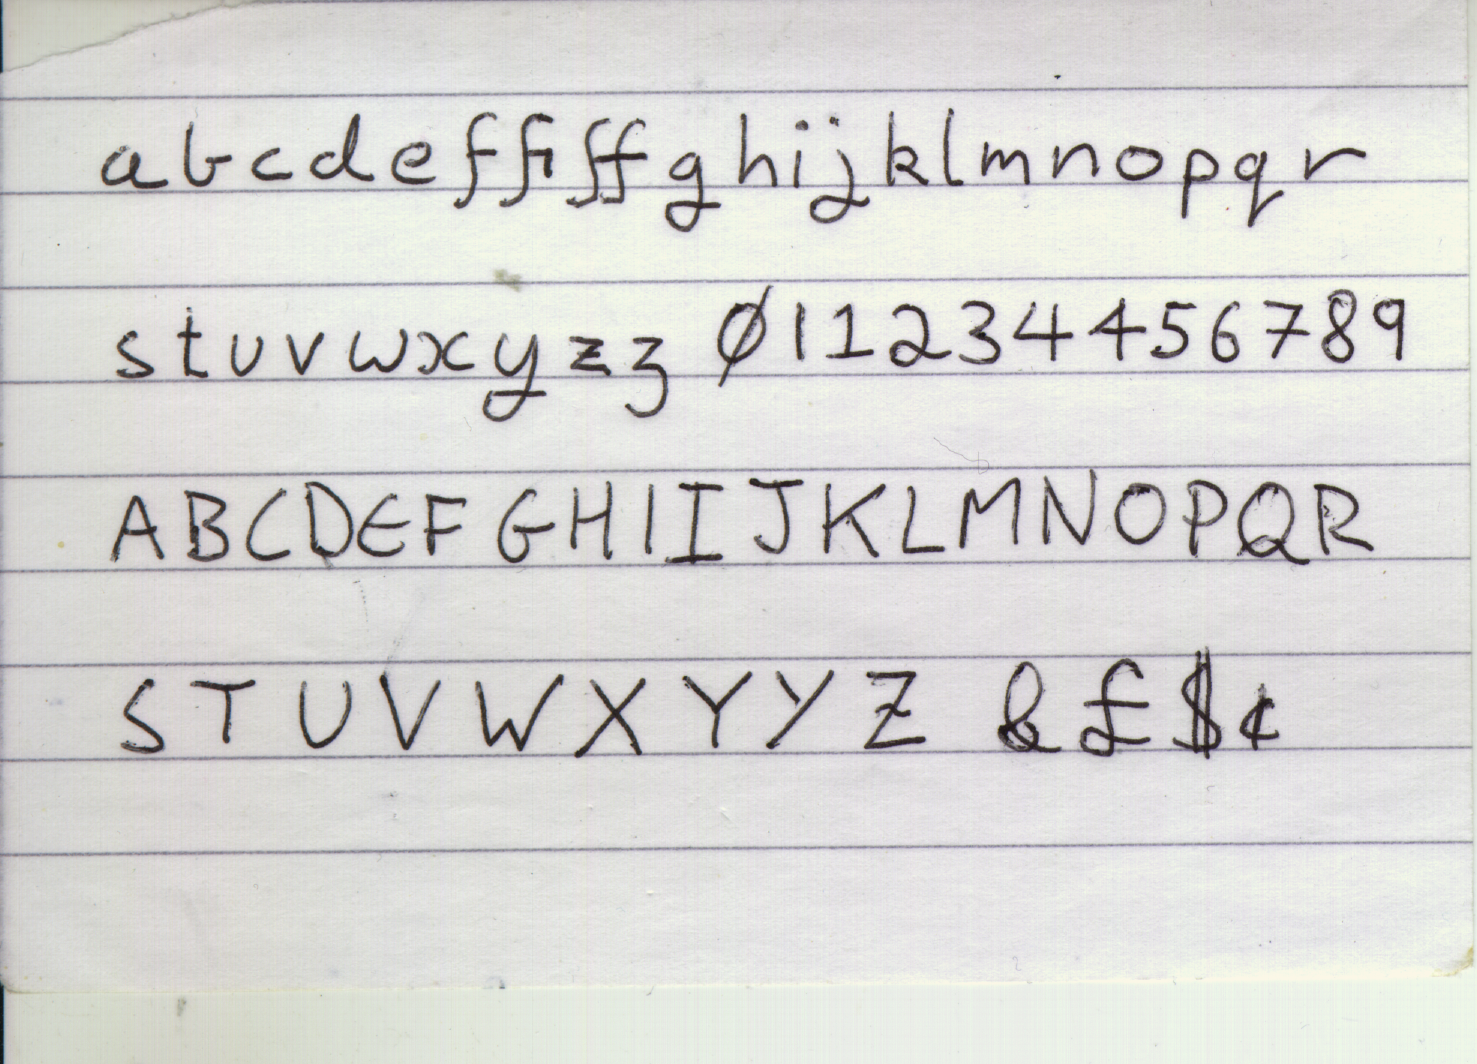 a b c d e f fi ff g h i j k l m n o p q r
s t u v w x y z z 0 1 1 2 3 4 4 5 6 7 8 9
A B C D E F G H I I J K L M N O P Q R
S T U V W X Y Y Z & £ $ ¢